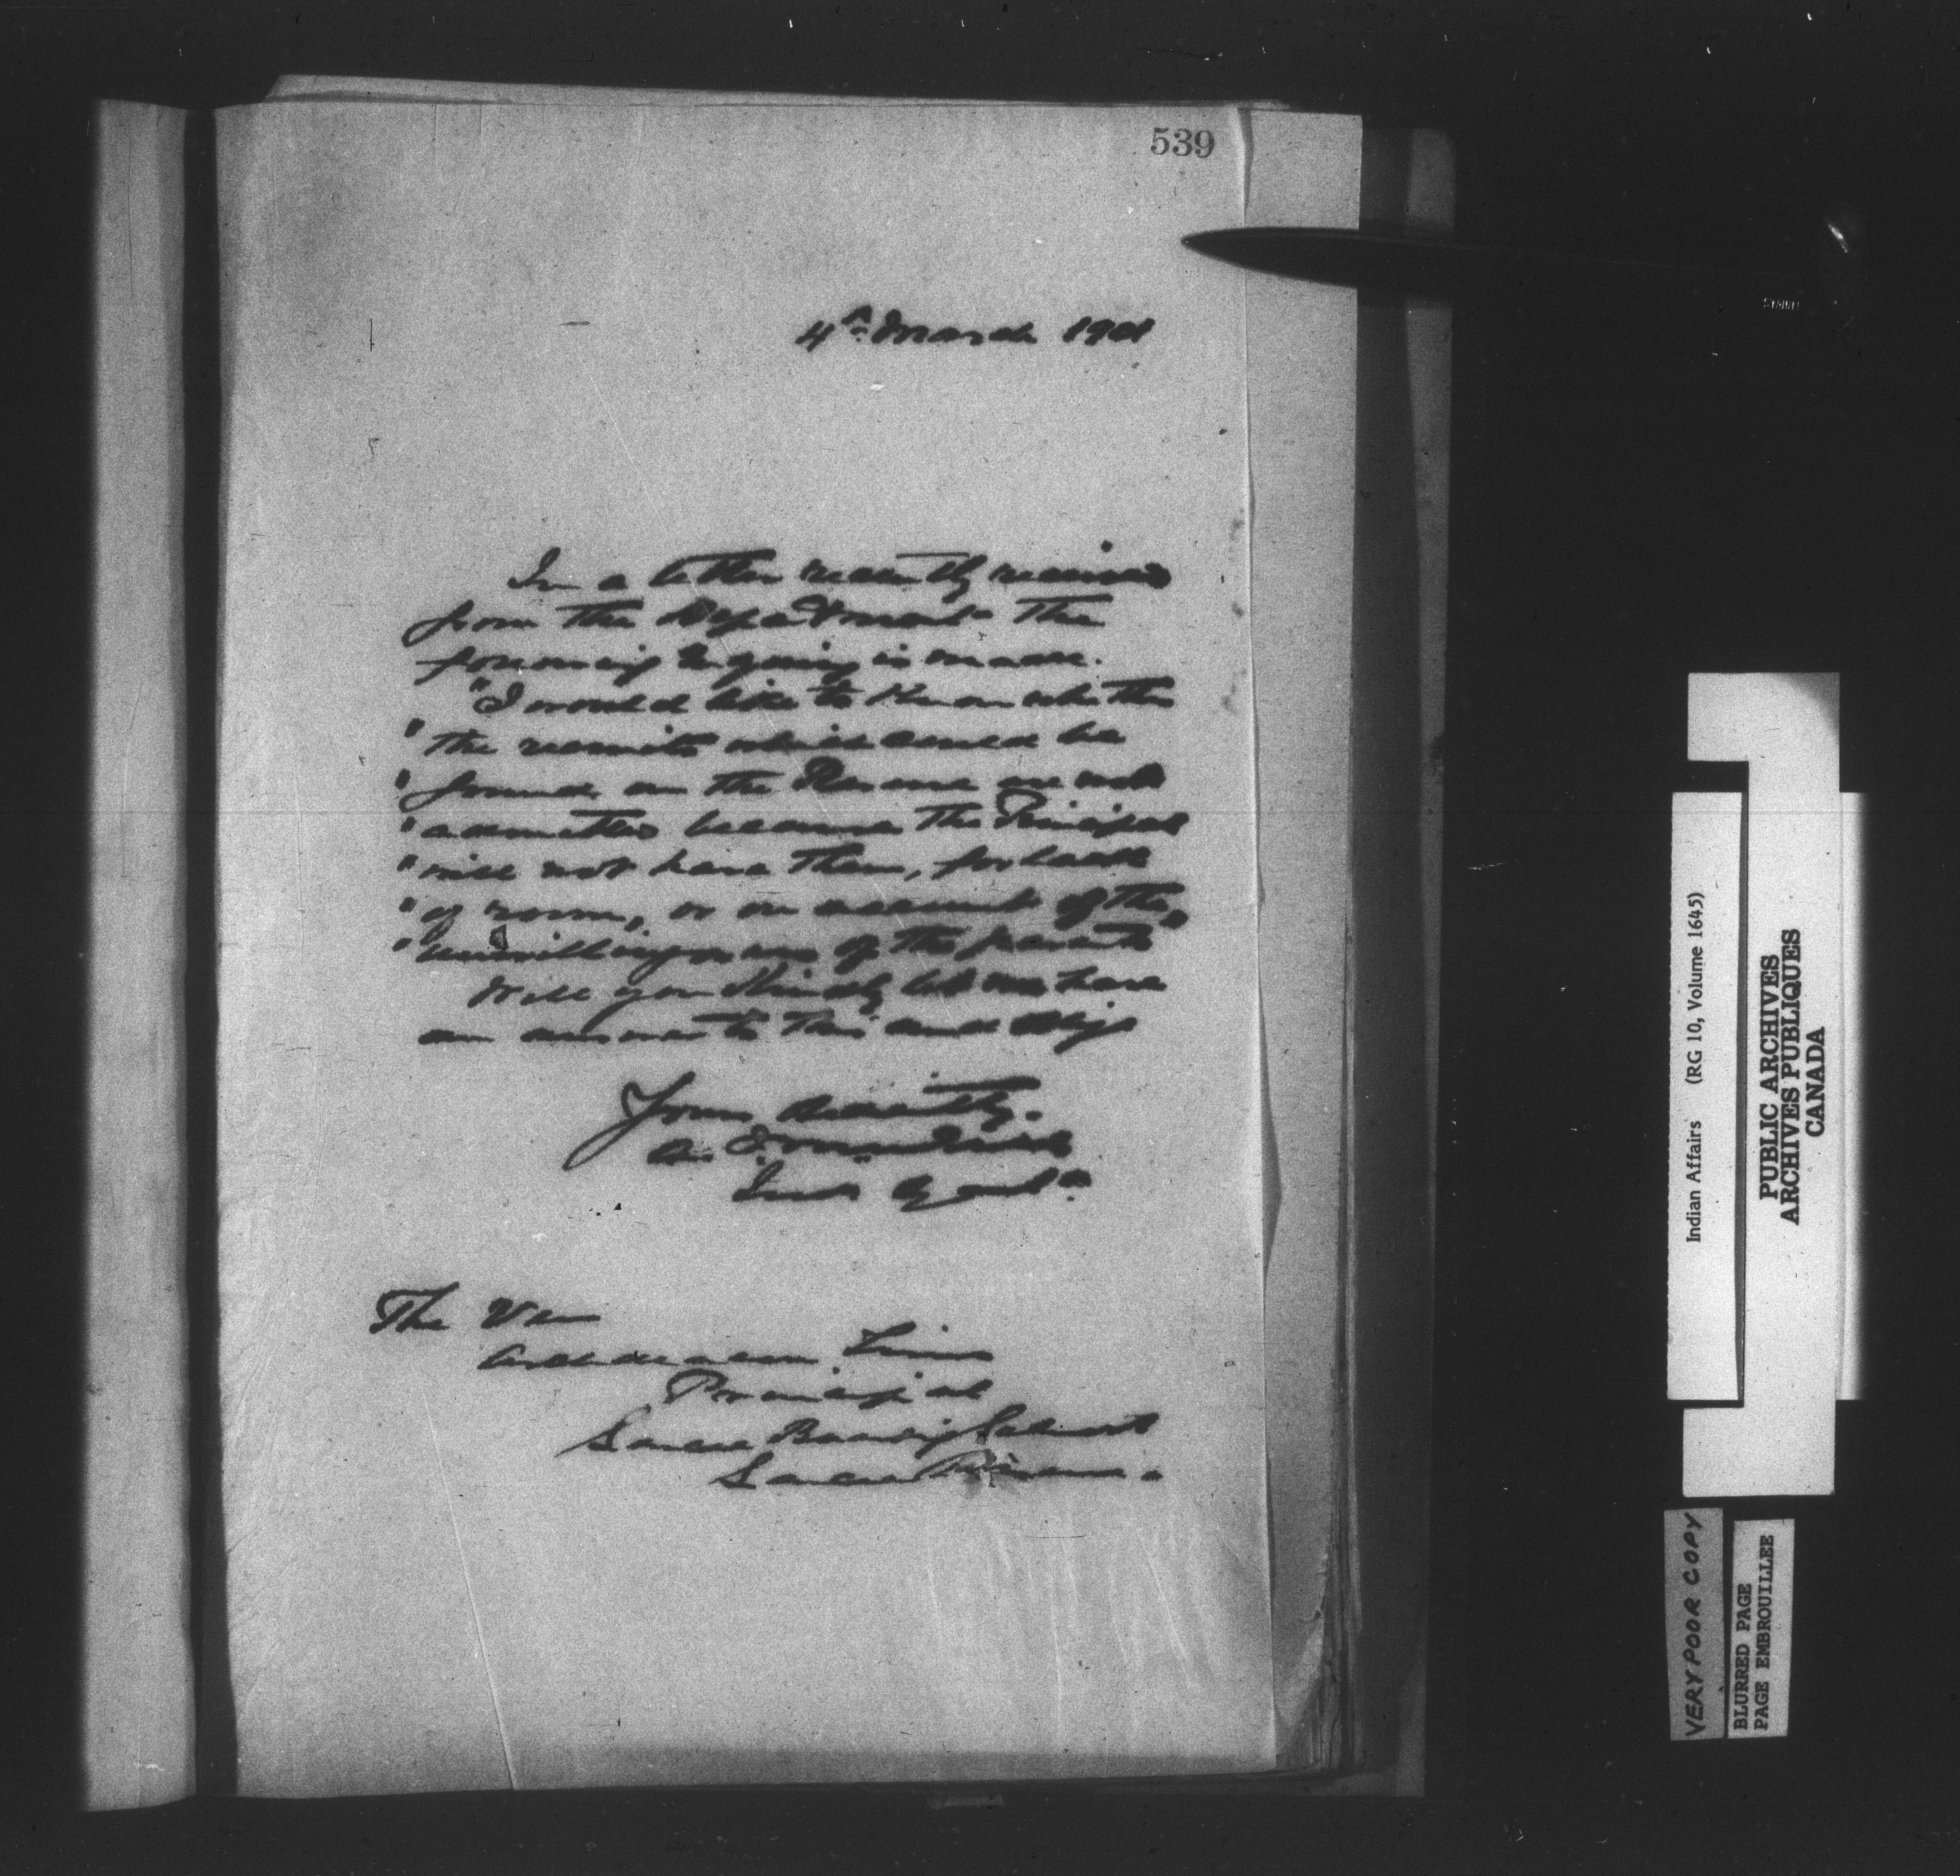 539
4th March 1901
In a letter recently received
from the Department the
following Enquiry is made.
"I would like to Know whether
" the recruits which could be
" found on the Reserve are not
" admitted because the Principal
" will not have them, for lack
" of room, or on account of the
" unwillingness of the parents"
Will you Kindly let me have
an answer to this and oblige
Yours
Ind Agent
The Ven
Archdeacon Tims
Principal
Sarcee Boarding School
Sarcee Reserve.
Indian Affairs (RG 10, Volume 1645)
PUBLIC ARCHIVES
ARCHIVES PUBLIQUES
CANADA
VERY POOR COPY
BLURRED PAGE
PAGE EMBROUILLEE